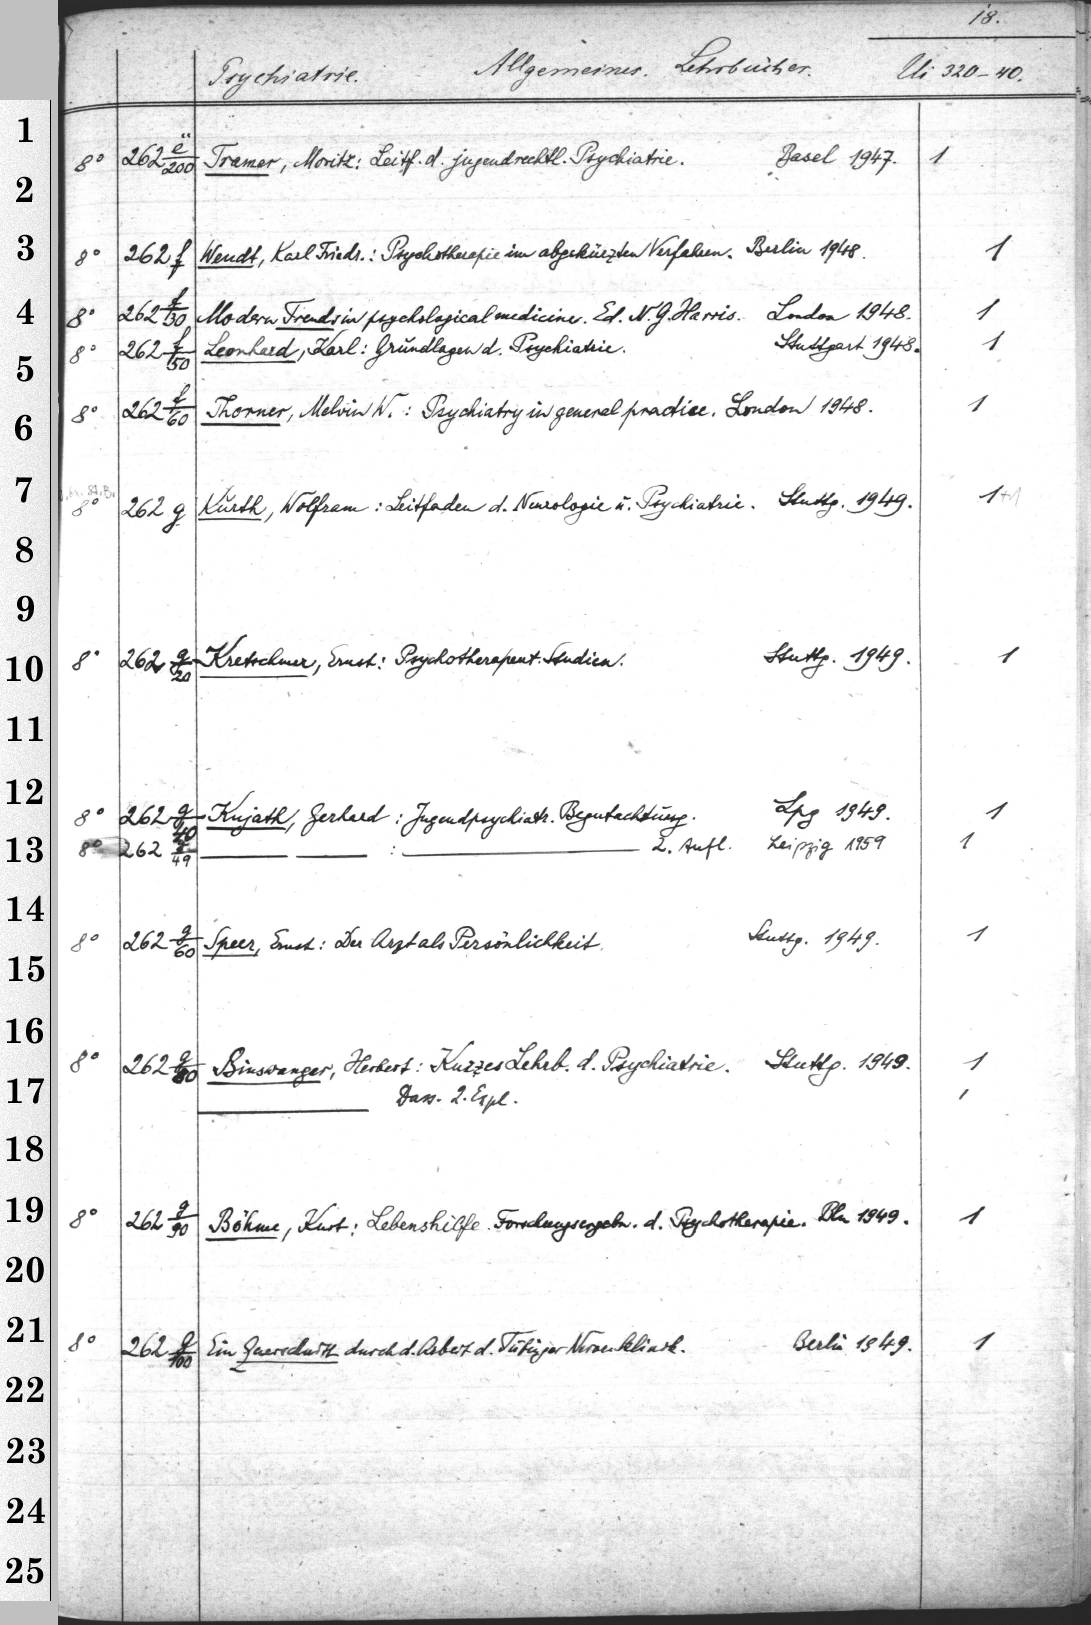 18.
Psychiatrie. Allgemeines. Lehrbücher. Ui 320-40.
1
8° 262 e/200 Tramer, Moritz: Leitf. d. jugendrechtl. Psychiatrie. Basel 1947. 1
2
3 8° 262 f/7 Wendt, Karl Friedr.: Psychotherapie im abgekürzten Verfahren. Berlin 1948. 1
4 8° 262 f/30 Modern Trends in psychological medicine. Ed. N. G. Harris. London 1948. 1
8° 262 f/50 Leonhard, Karl: Grundlagen d. Psychiatrie. Stuttgart 1948. 1
5
6 8° 262 f/60 Thorner, Melvin W.: Psychiatry in general practice. London 1948. 1
7 8° 262 g Kurth, Wolfram: Leitfaden d. Neurologie u. Psychiatrie. Stuttg. 1949. 1+1
8
9
10 8° 262 g/20 Kretschmer, Ernst: Psychotherapeut. Studien. Stuttg. 1949. 1
11
12 8° 262 g/40 Kujath, Gerhard: Jugendpsychiatr. Begutachtung. Lpg 1949. 1
13 8° 262 /49 : 2. Aufl. Leipzig 1959 1
14
8° 262 g/60 Speer, Ernst: Der Arzt als Persönlichkeit. Stuttg. 1949. 1
15
16
8° 262 g/80 Binswanger, Herbert: Kurzes Lehrb. d. Psychiatrie. Stuttg. 1949. 1
17 Dass. 2. Expl. 1
18
19 8° 262 g/90 Böhme, Kurt: Lebenshilfe. Forschungsergebn. d. Psychotherapie. Bln 1949. 1
20
21 8° 262 g/100 Ein Querschnitt durch d. Arbeit d. Tübinger Nervenklinik. Berlin 1949. 1
22
23
24
25